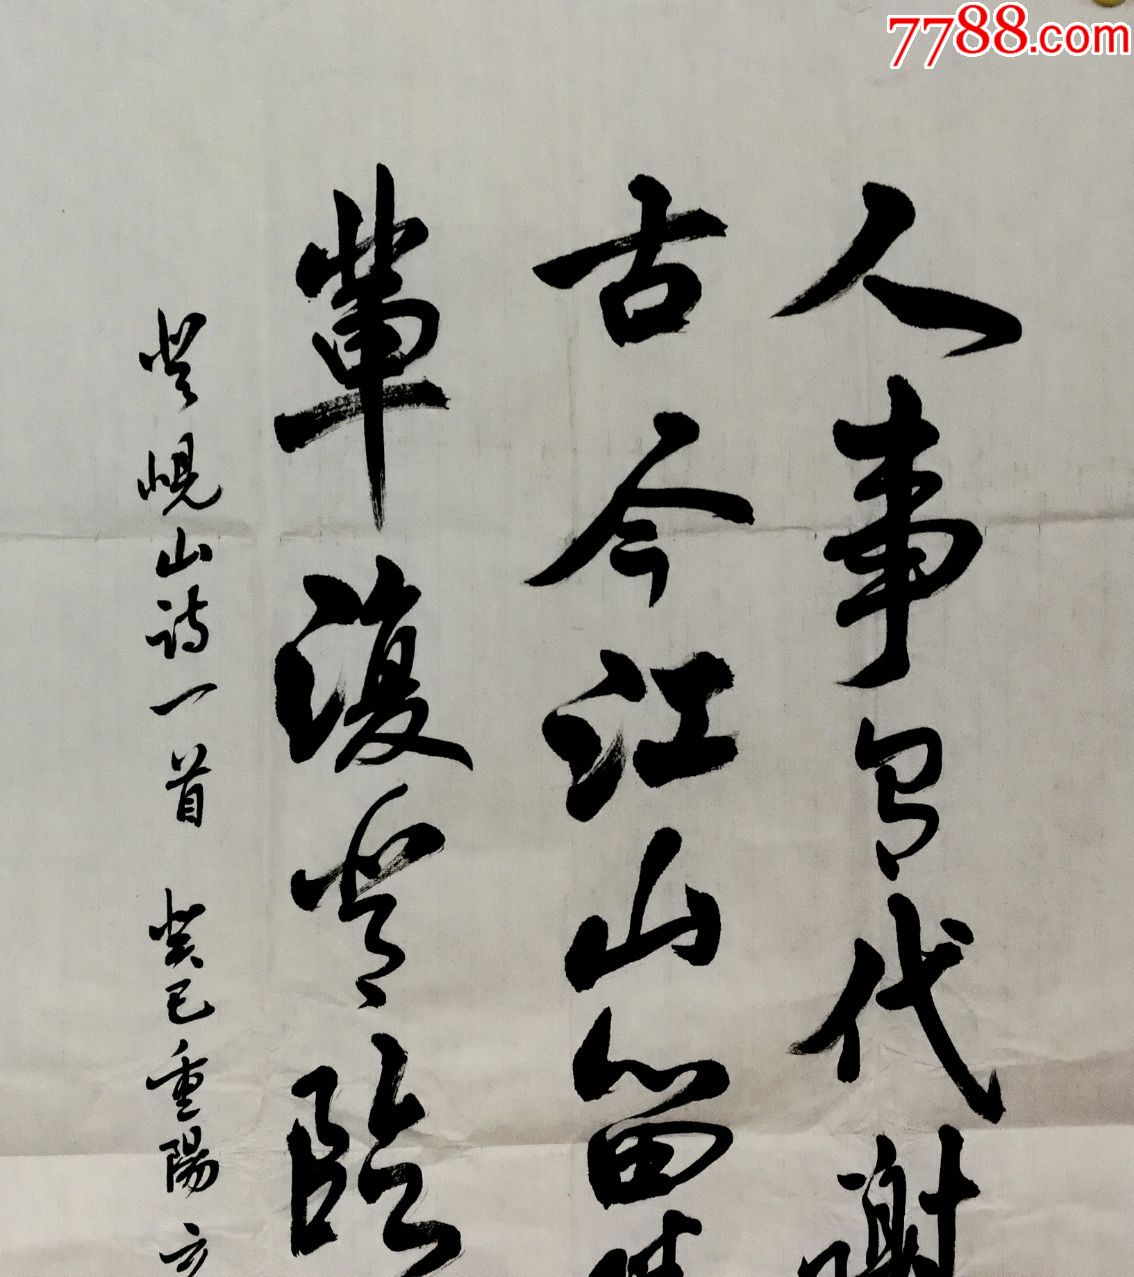 7788.com
人事有代謝
古今江山留
輩復登臨
登峴山诗一首 癸巳重陽